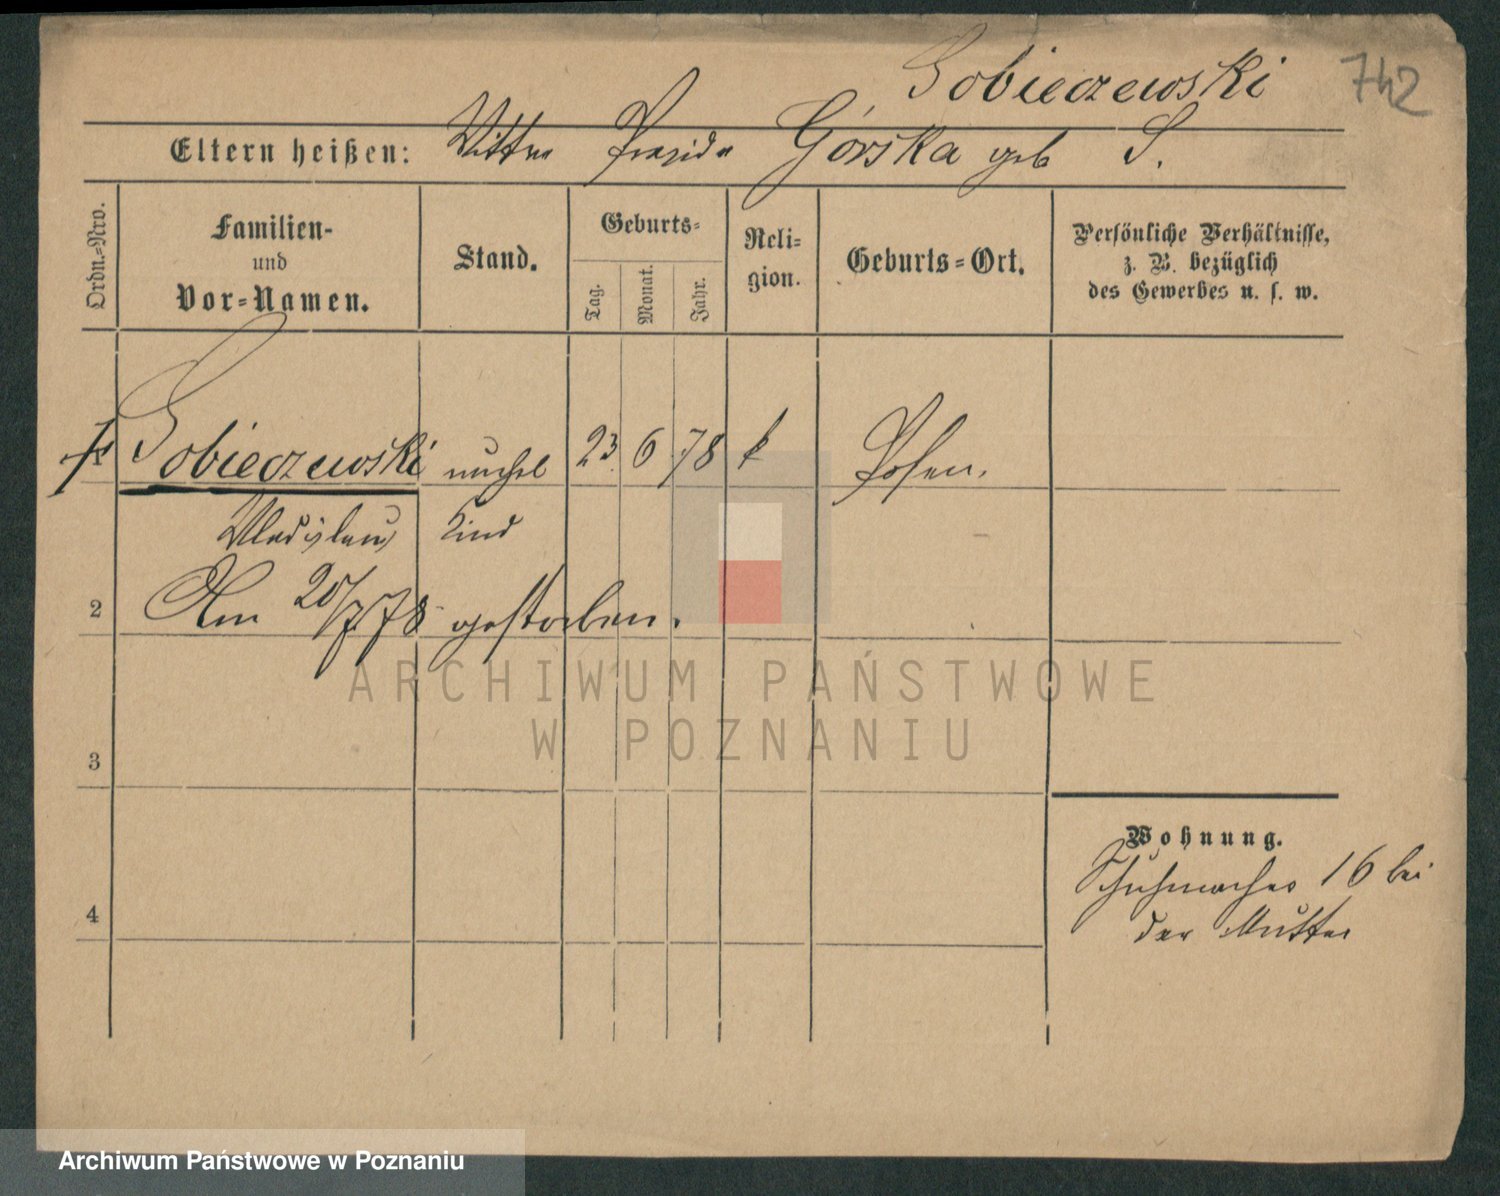 Sobieczewski 742
Eltern heißen: Wittwe Prazida Górska geb S.
Ordn.=Nro.
Familien-
und
Vor=Namen.
Stand.
Geburts=
Tag.
Monat.
Jahr.
Reli=
gion.
Geburts=Ort.
Persönliche Verhältnisse,
z. B. bezüglich
des Gewerbes u. s. w.
1 Sobieczewski unehel 23. 6 78 k Posen.
Wladislaus Kind
2 Am 20/7 78 gestorben.
3
4
Wohnung.
Schuhmacher 16 bei
der Mutter
ARCHIWUM PAŃSTWOWE
W POZNANIU
Archiwum Państwowe w Poznaniu